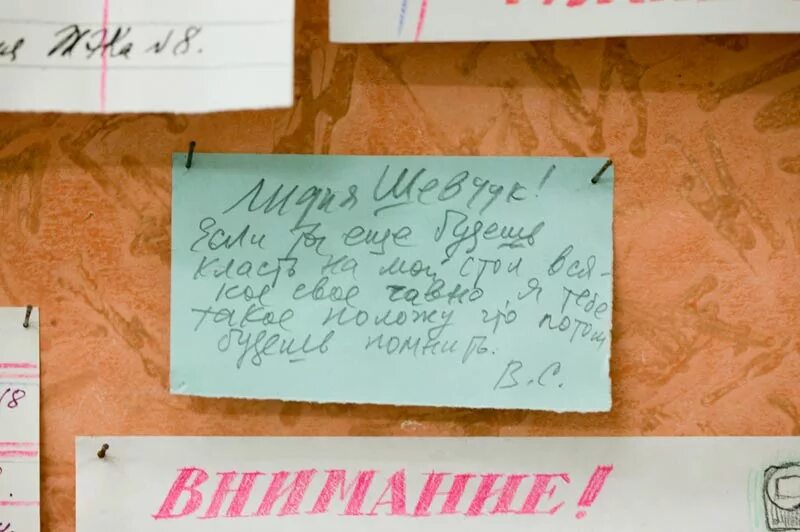 ЖЭКа №8.
Лидия Шевчук!
Если ты еще будешь
класть на мой стол вся-
кое свое гавно, я тебе
такое положу что потом
будешь помнить.
В.С.
18
ВНИМАНИЕ!